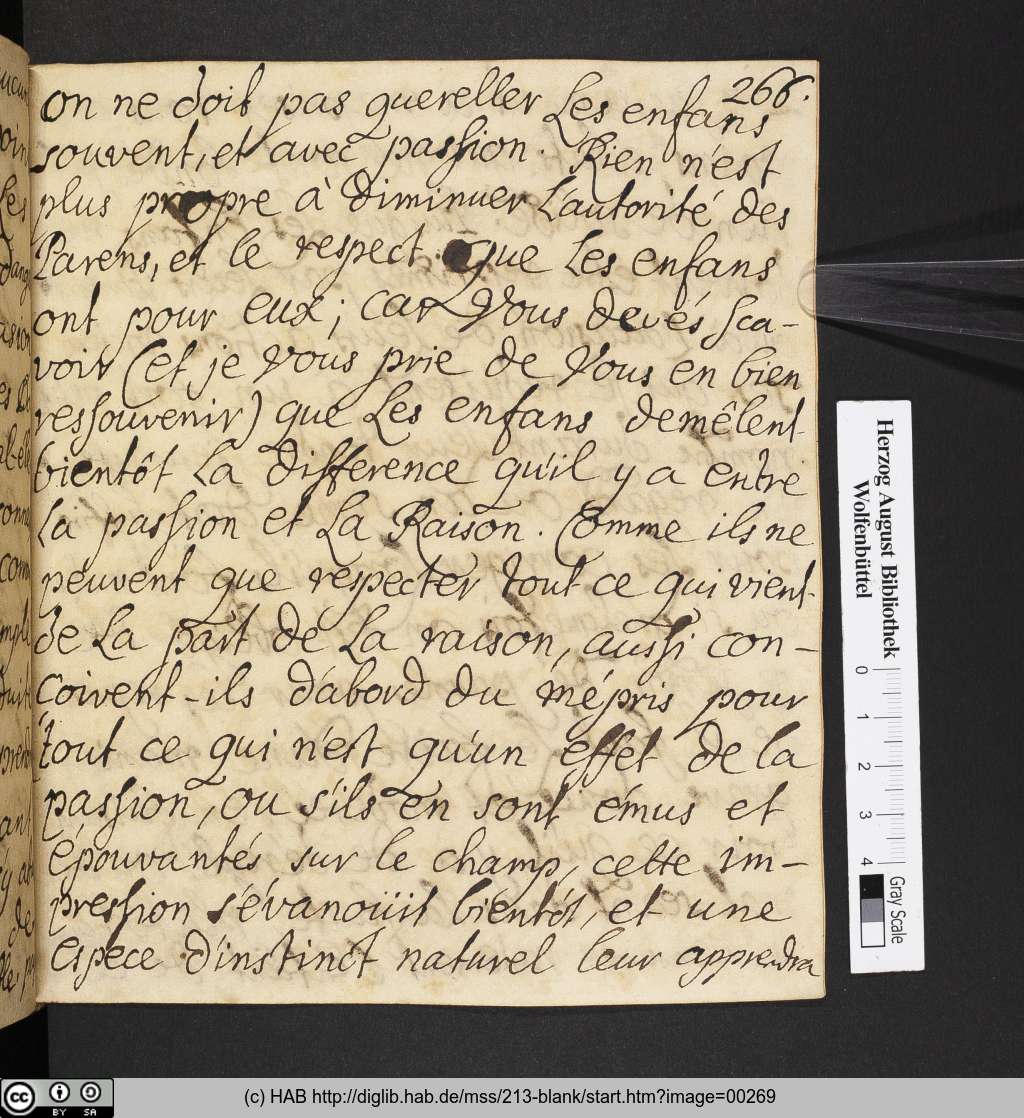 266.
on ne doit pas quereller Les enfans
souvent, et avec passion. Rien n'est
plus propre à diminuer L'autorité des
Parens, et le respect que Les enfans
ont pour eux; car Vous devés sca-
voir (et je vous prie de Vous en bien
ressouvenir) que Les enfans demêlent
bientôt La difference qu'il y a entre
La passion et La Raison. Comme ils ne
peuvent que respecter tout ce qui vient
de La part de La raison, aussi con-
coivent-ils d'abord du mépris pour
tout ce qui n'est qu'un effet de la
passion, ou s'ils en sont émus et
épouvantés sur le champ, cette im-
pression s'évanoüit bientôt, et une
espece d'instinct naturel leur apprendra
Herzog August Bibliothek
Wolfenbüttel
0 1 2 3 4
Gray Scale
cc BY SA
(c) HAB http://diglib.hab.de/mss/213-blank/start.htm?image=00269